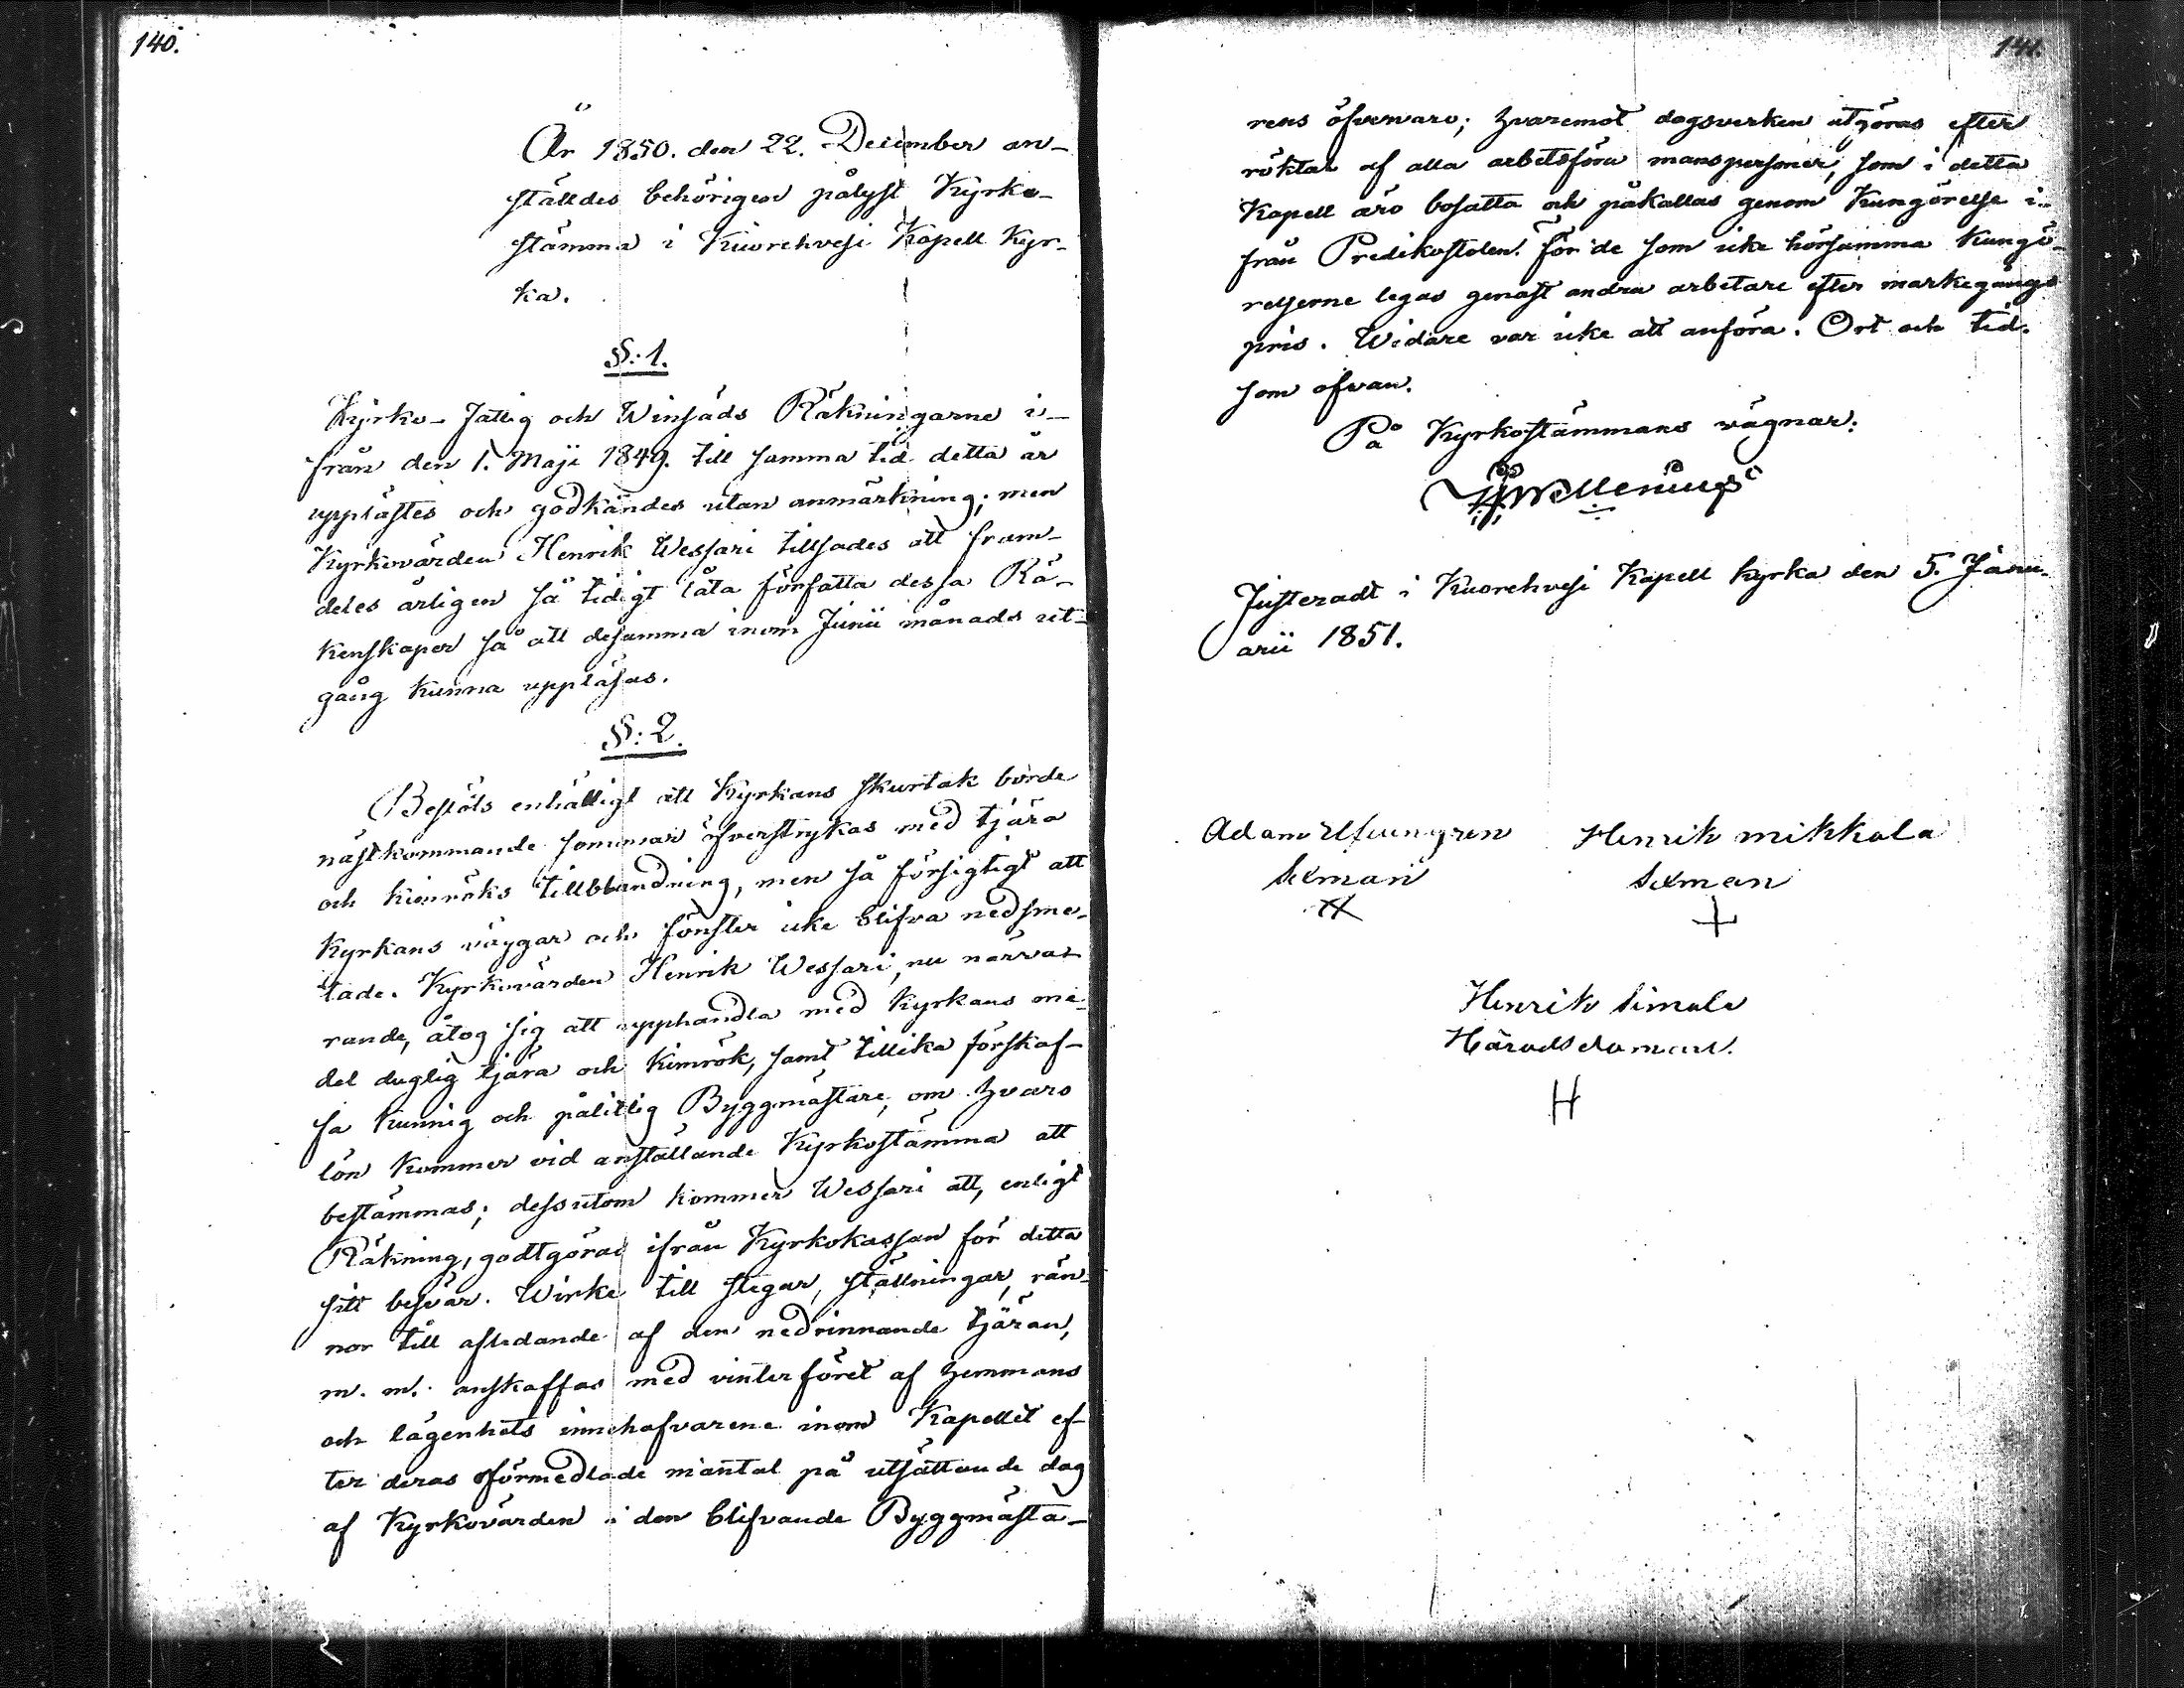 140.
År 1850. den 22. December an-
ställdes behörigen pålyst Kyrko-
stämma i Kuorehvesi Kapell Kyr-
ka.
§: 1.
Kyrko- Fattig och Winsäds Räkningarne i-
från den 1. Maji 1849. till samma tid detta år
upplästes och godkändes utan anmärkning; men
Kyrkovärden Henrik Wessari tillsades att fram-
deles årligen så tidigt låta författa dessa Rä-
kenskaper så att desamma inom Junii månads ut-
gång kunna uppläsas.
§: 2.
Beslöts enhälligt att Kyrkans skurtak borde
nästkommande sommar öfverstrykas med tjära
och kimröks tillblandning, men så försigtigt att
Kyrkans väggar och fönster icke blifva nedsme-
tade. Kyrkovärden Henrik Wessari, nu närva-
rande, åtog sig att upphandla med Kyrkans me-
del duglig tjära och kimrök, samt tillika förskaf-
fa kunnig och pålitlig Byggmästare, om hvars
lön kommer vid anställande Kyrkostämma att
bestämmas; dessutom kommer Wessari att, enligt
Räkning, godtgöras ifrån Kyrkokassan för detta
sitt besvär. Wirke till stegar, ställningar, rän-
nor till afledande af den nedrinnande tjäran,
m. m. anskaffas med vinterföret af hemmans
och lägenhets innehafvarene inom Kapellet ef-
ter deras oförmedlade mantal på utsättande dag
af Kyrkovärden i den blifvande Byggmästa-
141.
rens öfvervaro; hvaremot dagsverken utgöras efter
röktal af alla arbetsföra manspersoner, som i detta
Kapell äro bosatta och påkallas genom Kungörelse i-
från Predikostolen. För de som icke hörsamma Kungö-
relserne legas genast andra arbetare efter markegångs
pris. Widare var icke att anföra. Ort och tid.
som ofvan.
På Kyrkostämmans vägnar:
Justeradt i Kuorehvesi Kapell Kyrka den 5. Janu-
arii 1851.
Adam
Henrik Mikkola
Sexman
Sexman
Henrik Simola
Häradsdomare.
H